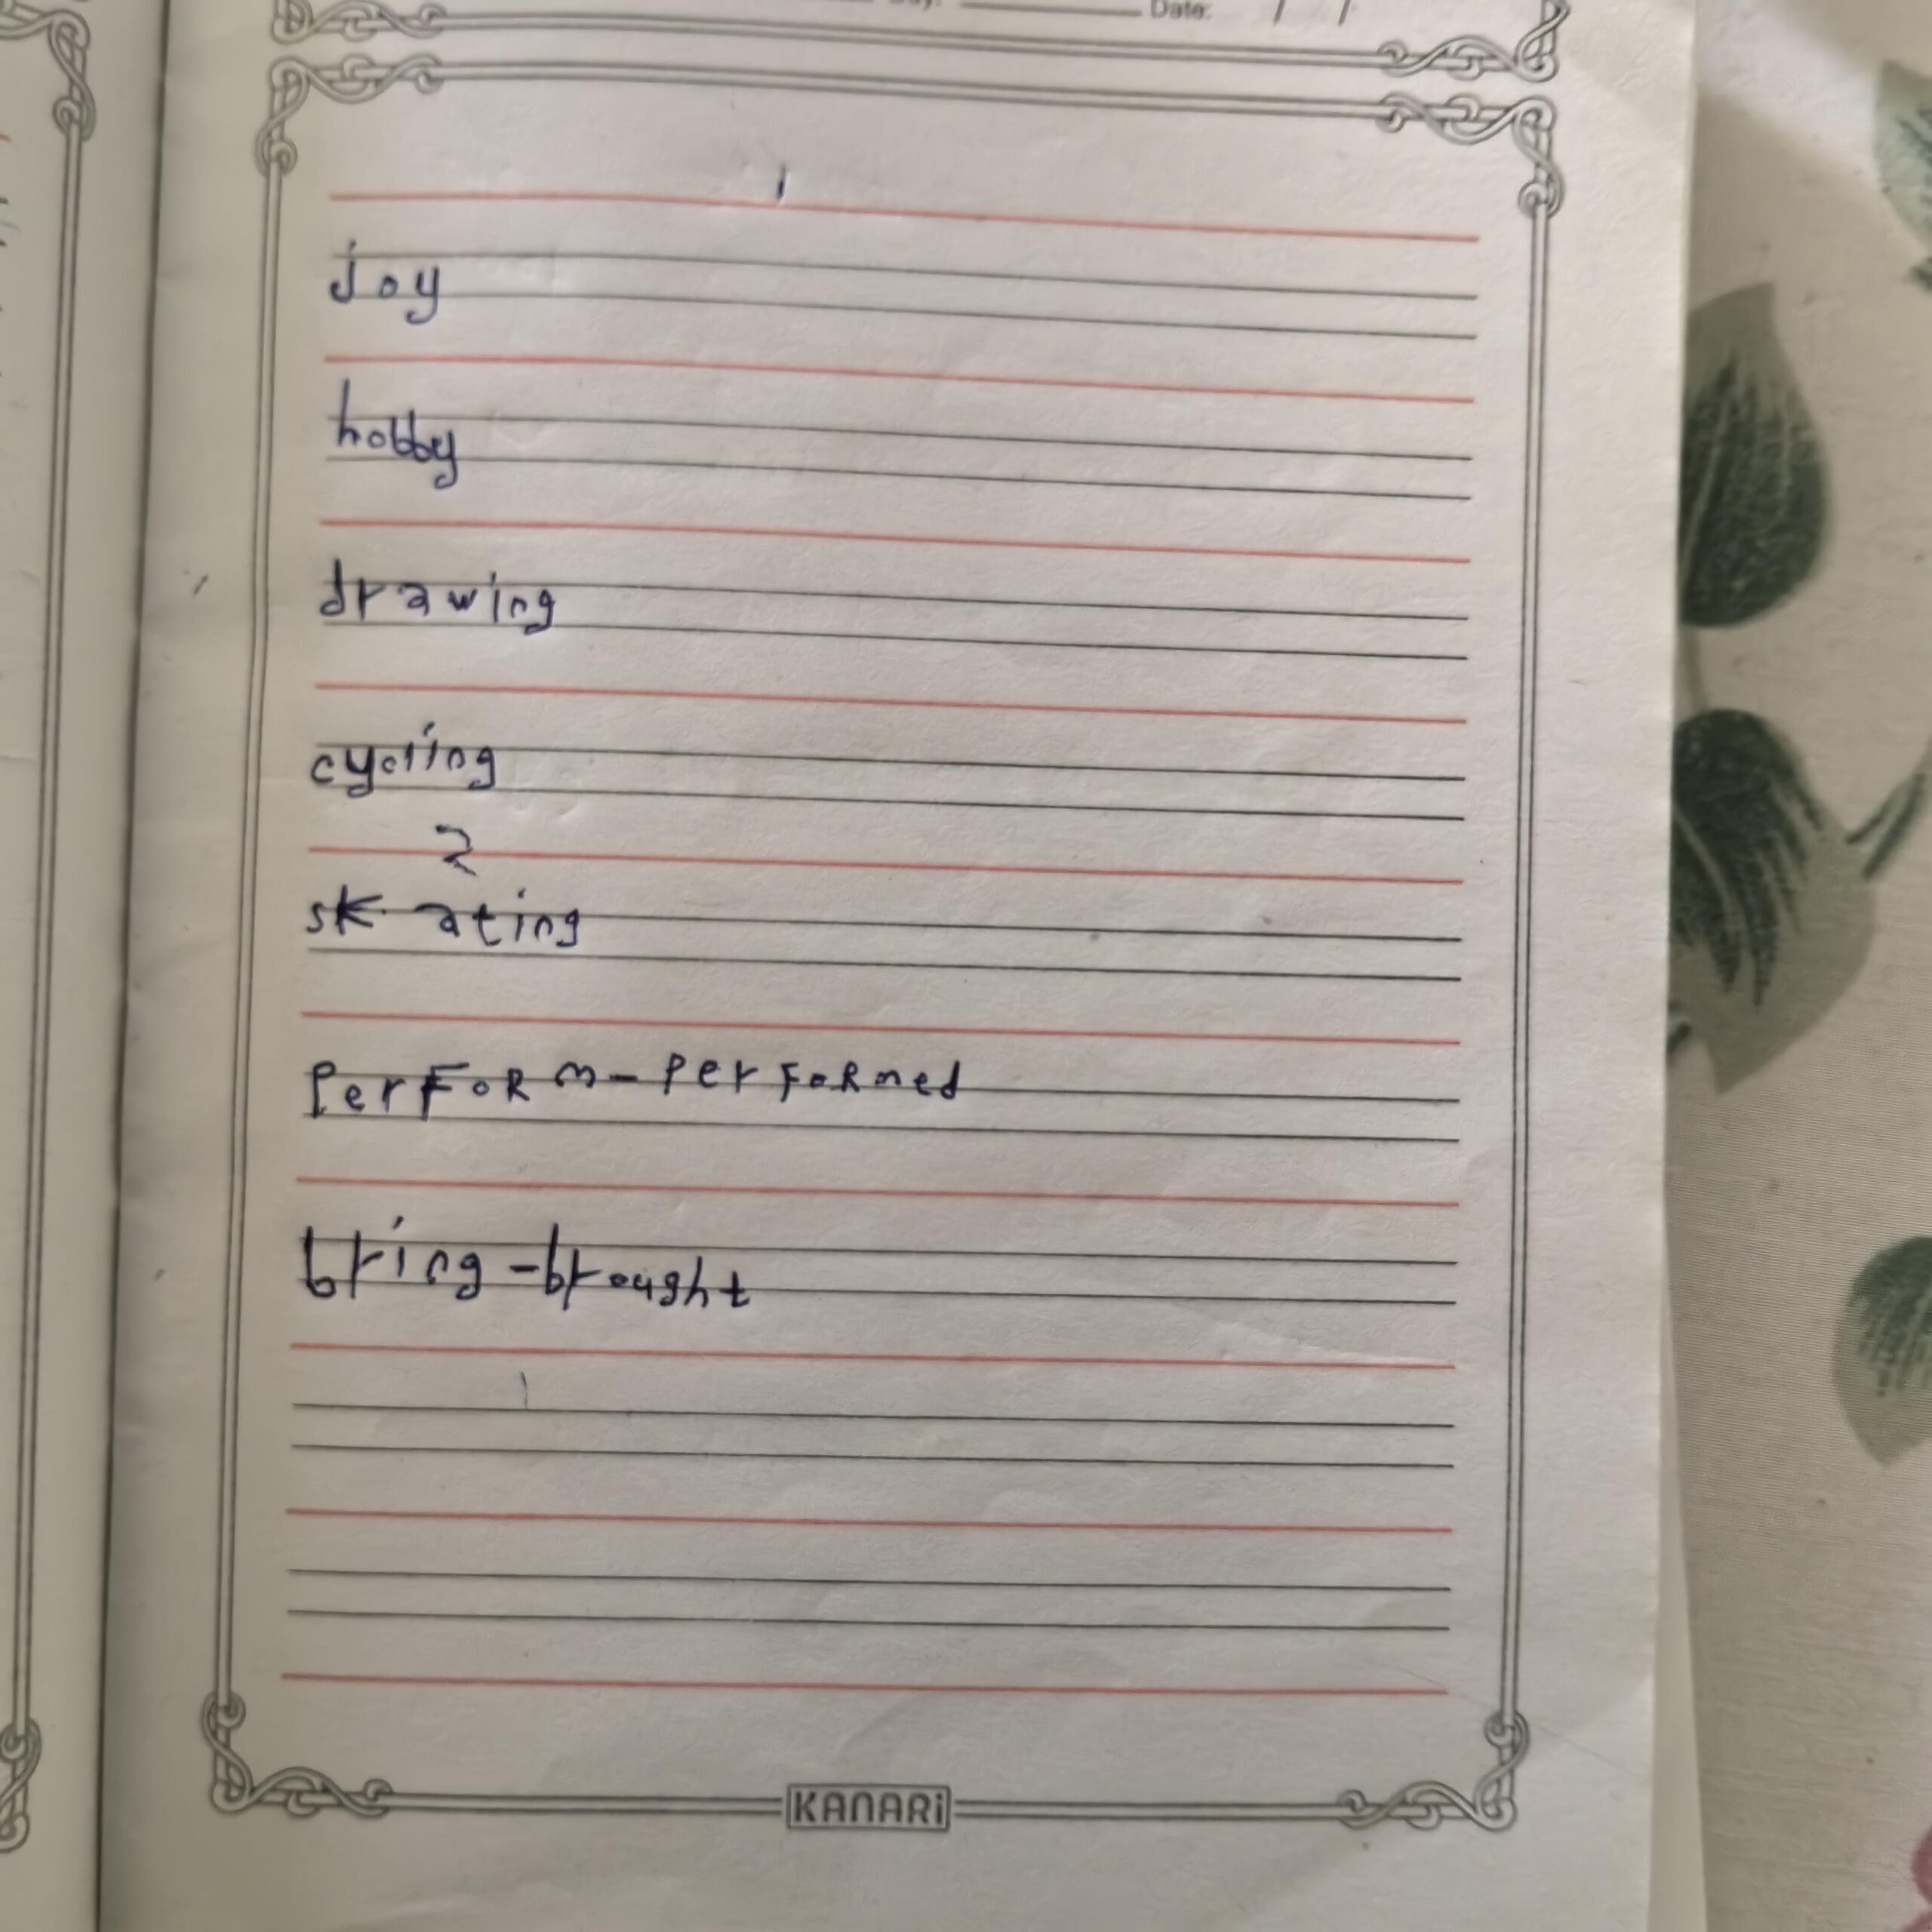 Date: / /
joy
hobby
drawing
cycling
2
sk ating
PerFoRm - PerFoRmed
bring - brought
KANARi